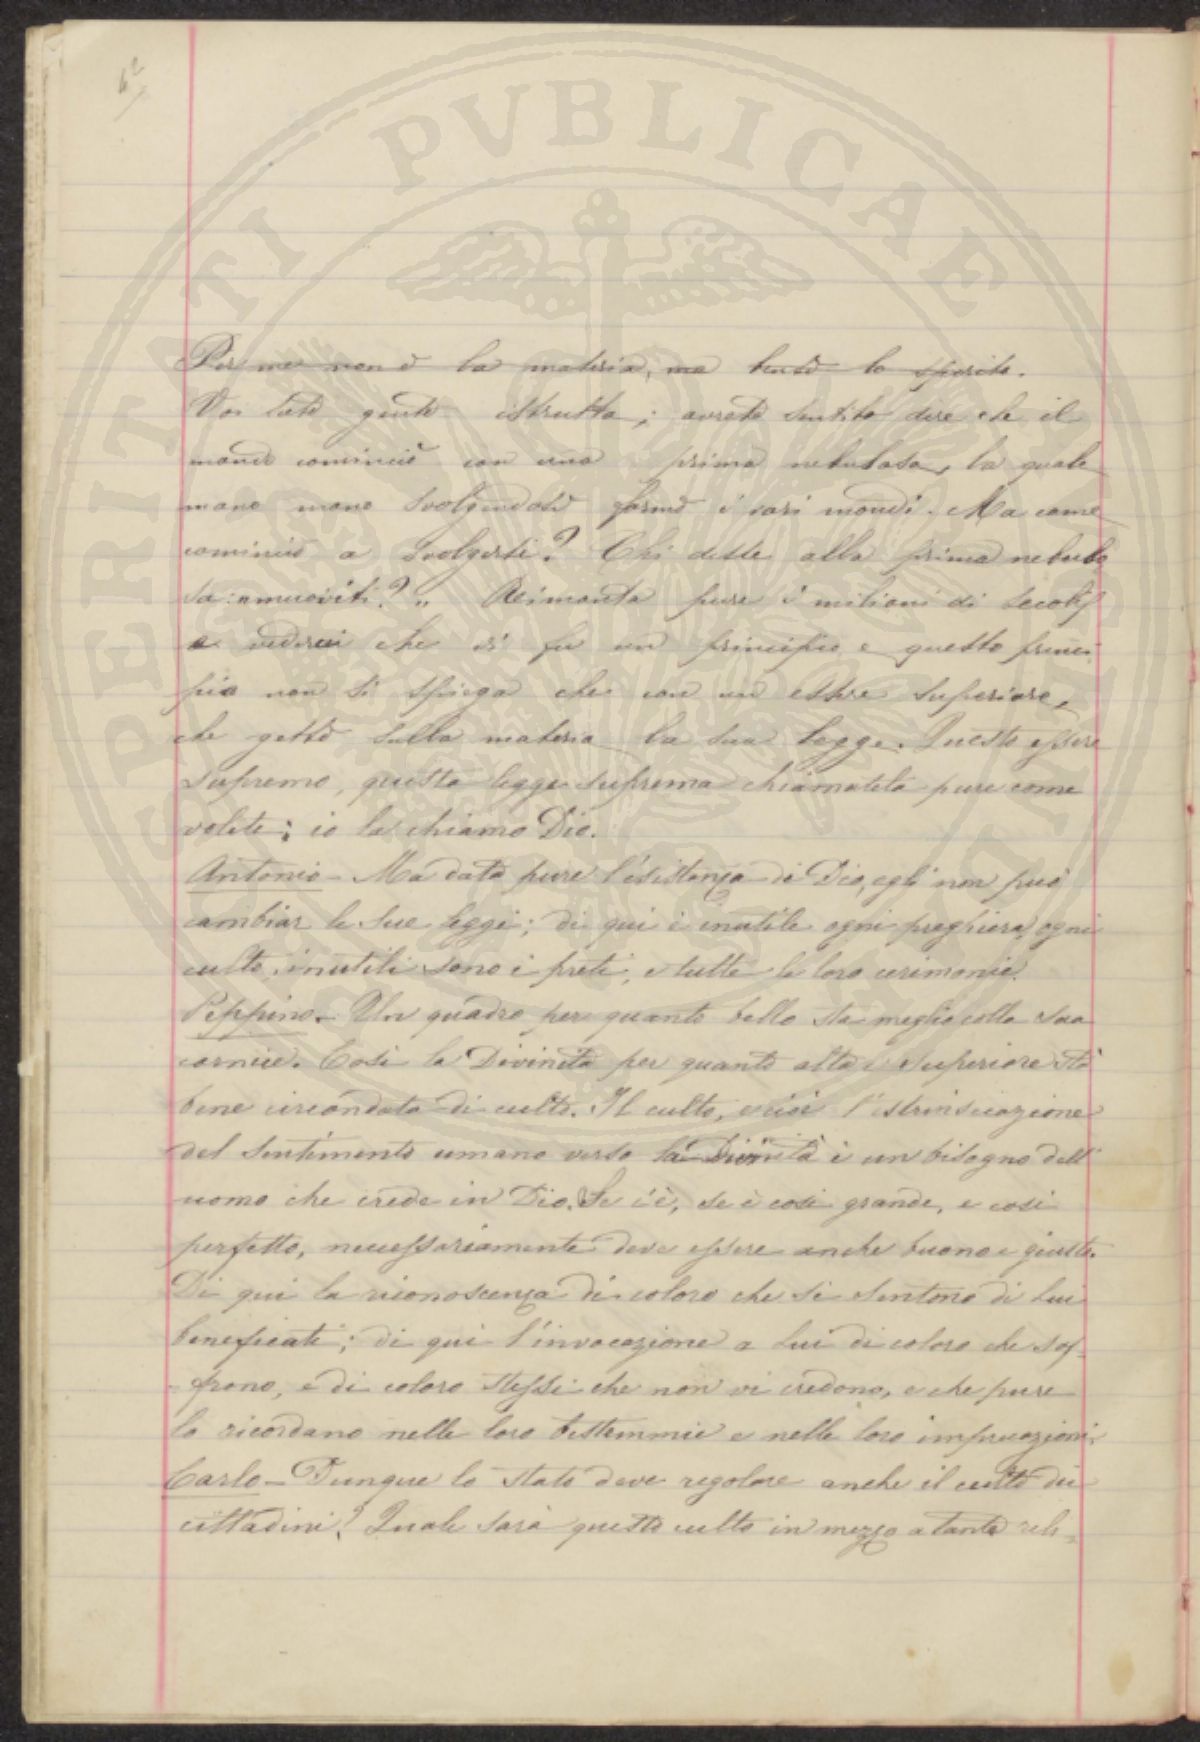 62
PVBLICAE
Per me non è la materia, ma bensì lo spirito.
Voi siete gente istrutta; avrete sentito dire che il
mondo cominciò con una prima nebulosa, la quale
mano mano svolgendosi formò i vari mondi. Ma come
cominciò a svolgersi? Chi disse alla prima nebulo
sa: "muoviti?" Rimonta pure i milioni di secoli,
e vedrai che vi fu un principio e questo princi
pio non si spiega che con un essere superiore,
che gettò sulla materia la sua legge. Questo essere
supremo, questa legge suprema chiamatela pure come
volete; io la chiamo Dio.
Antonio - Ma data pure l'esistenza di Dio, egli non può
cambiar le sue leggi; di qui è inutile ogni preghiera, ogni
culto, inutili sono i preti, e tutte le loro cerimonie.
Peppino - Un quadro per quanto bello sta meglio colla sua
cornice. Così la Divinità per quanto alta e superiore stà
bene circondata di culto. Il culto, ossia l'estrinsecazione
del sentimento umano verso la Divinità è un bisogno dell'
uomo che crede in Dio. Se c'è, se è così grande, e così
perfetto, necessariamente deve essere anche buono e giusto.
Di qui la riconoscenza di coloro che si sentono di Lui
beneficati; di qui l'invocazione a Lui di coloro che sof-
frono, e di coloro stessi che non vi credono, e che pure
lo ricordano nelle loro bestemmie e nelle loro imprecazioni.
Carlo - Dunque lo Stato deve regolare anche il culto dei
cittadini? Quale sarà questo culto in mezzo a tante reli-